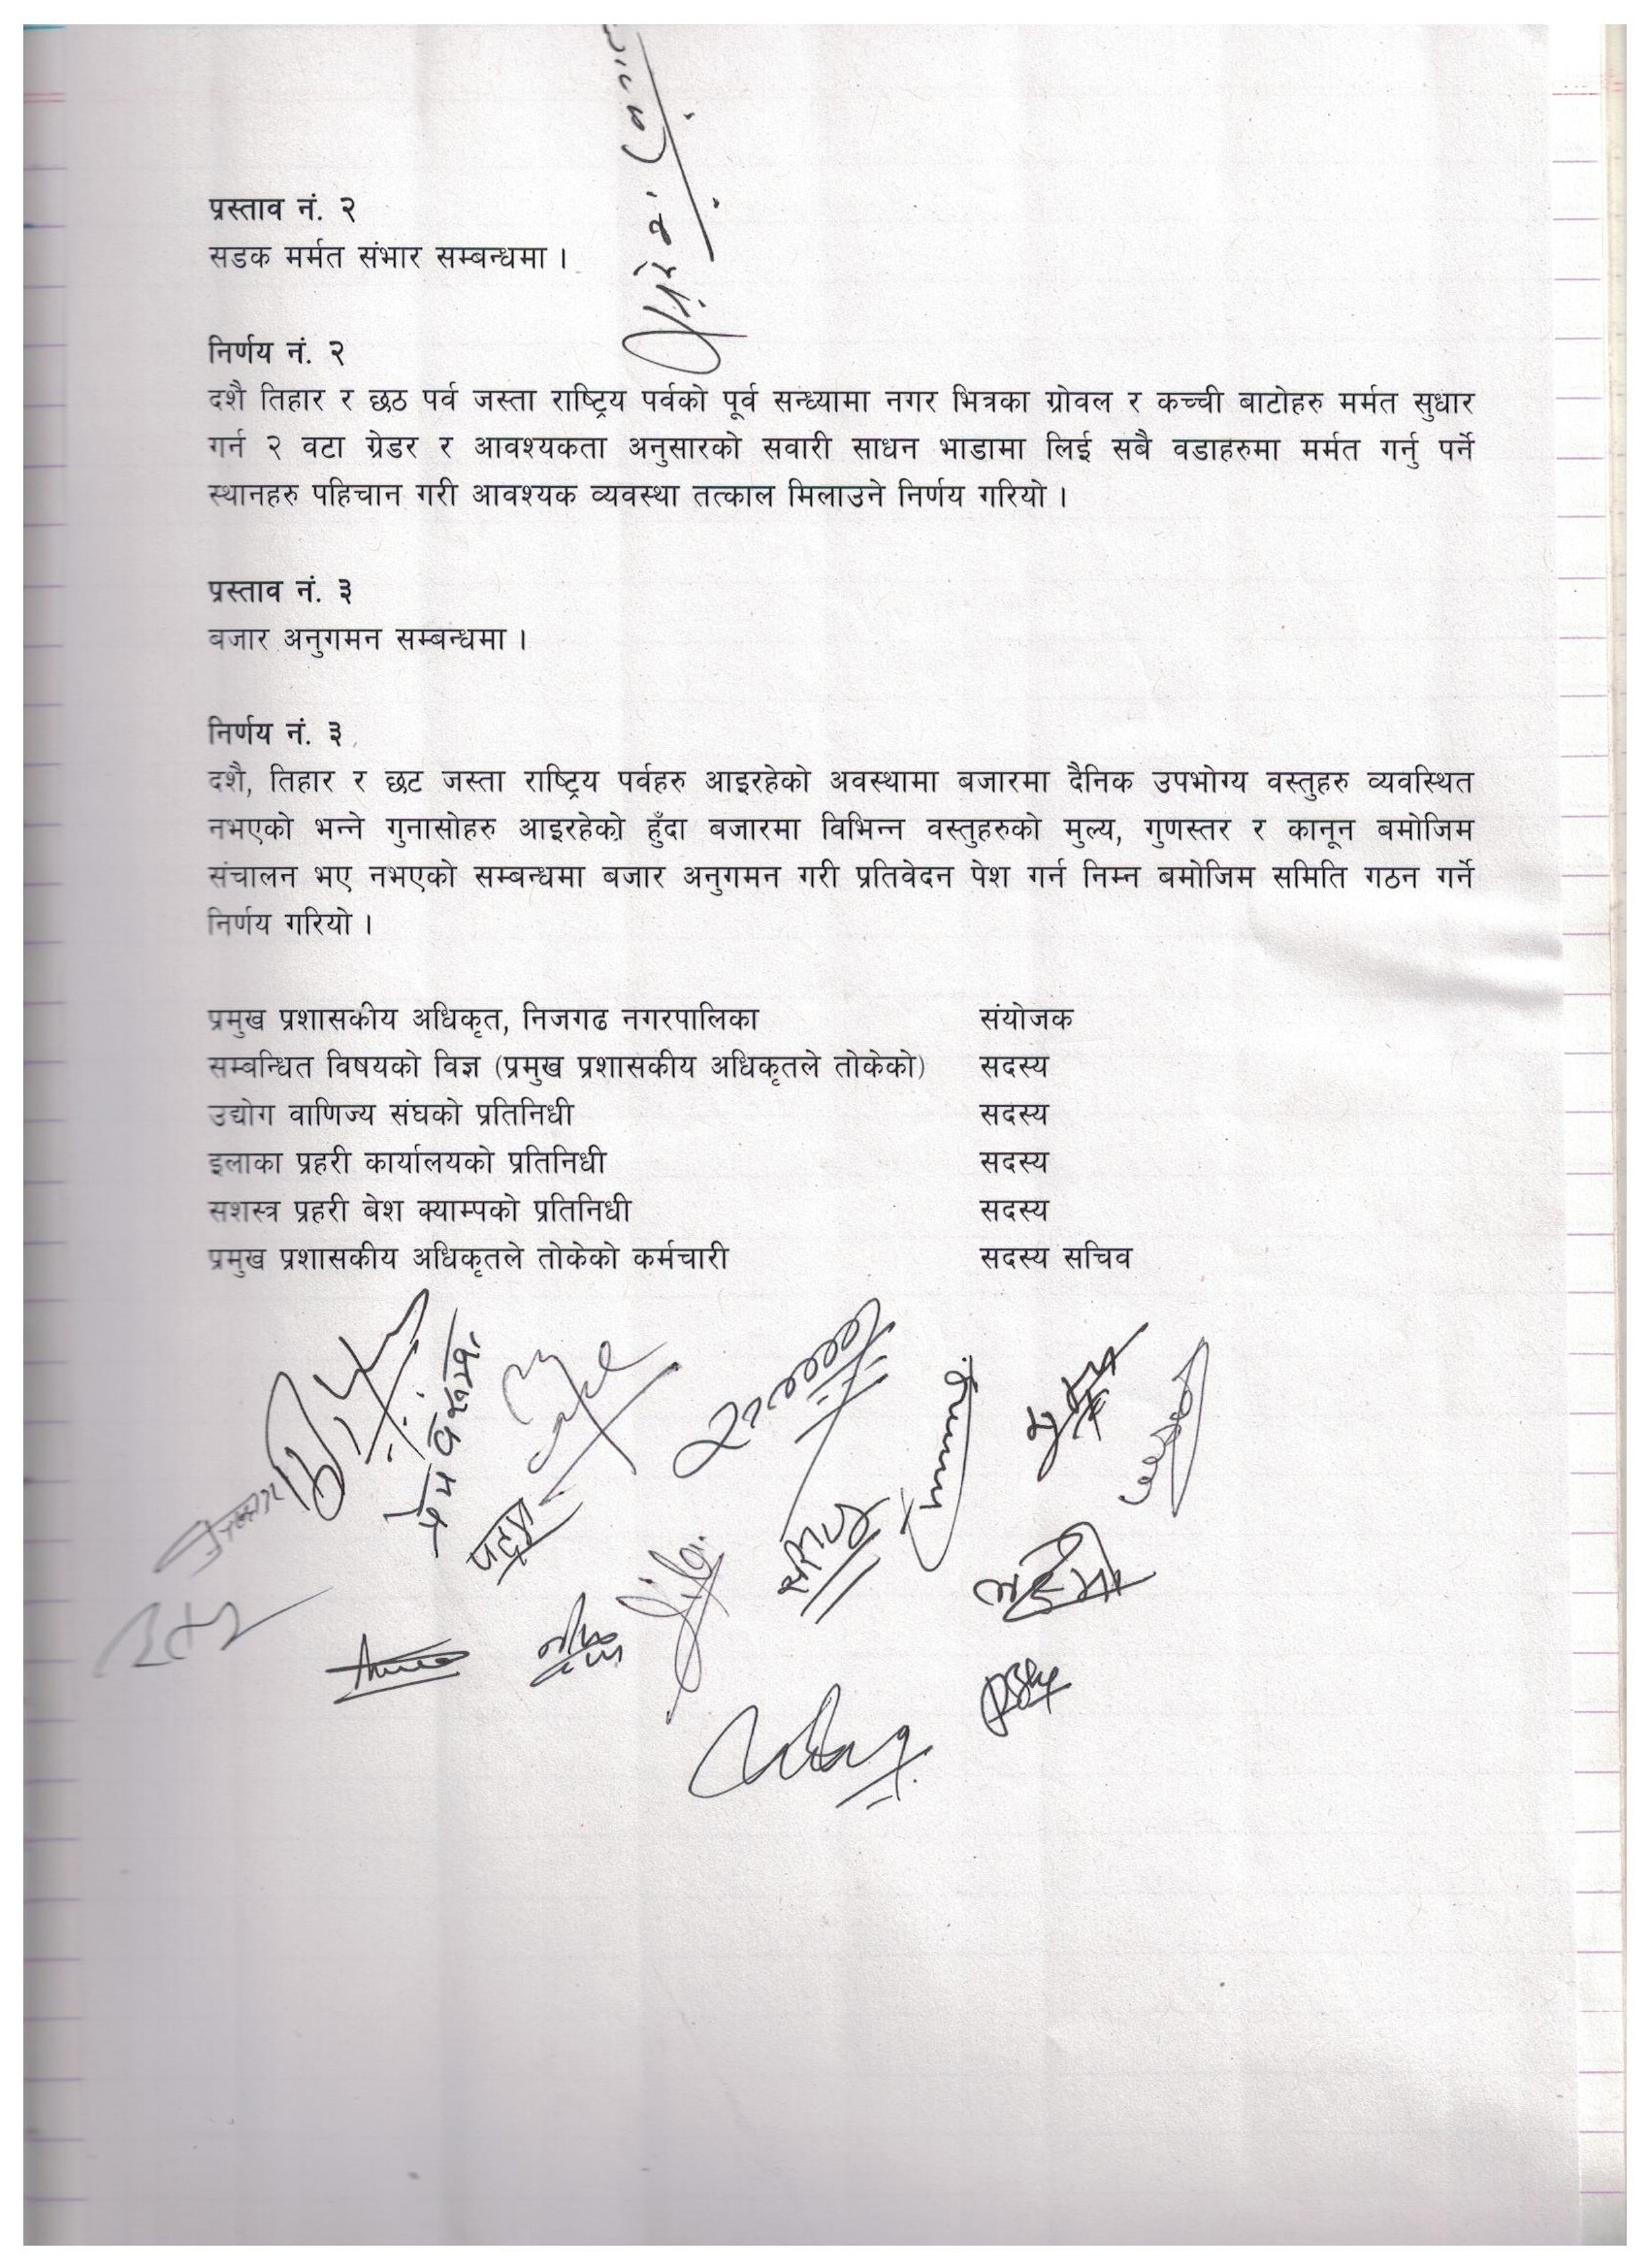 प्रस्ताव नं. २
सडक मर्मत संभार सम्बन्धमा ।
निर्णय नं. २
दशै तिहार र छठ पर्व जस्ता राष्ट्रिय पर्वको पूर्व सन्ध्यामा नगर भित्रका ग्रोवल र कच्ची बाटोहरु मर्मत सुधार
गर्न २ वटा ग्रेडर र आवश्यकता अनुसारको सवारी साधन भाडामा लिई सबै वडाहरुमा मर्मत गर्नु पर्ने
स्थानहरु पहिचान गरी आवश्यक व्यवस्था तत्काल मिलाउने निर्णय गरियो ।
प्रस्ताव नं. ३
बजार अनुगमन सम्बन्धमा ।
निर्णय नं. ३
दशै, तिहार र छट जस्ता राष्ट्रिय पर्वहरु आइरहेको अवस्थामा बजारमा दैनिक उपभोग्य वस्तुहरु व्यवस्थित
नभएको भन्ने गुनासोहरु आइरहेको हुँदा बजारमा विभिन्न वस्तुहरुको मुल्य, गुणस्तर र कानून बमोजिम
संचालन भए नभएको सम्बन्धमा बजार अनुगमन गरी प्रतिवेदन पेश गर्न निम्न बमोजिम समिति गठन गर्ने
निर्णय गरियो ।
प्रमुख प्रशासकीय अधिकृत, निजगढ नगरपालिका संयोजक
सम्बन्धित विषयको विज्ञ (प्रमुख प्रशासकीय अधिकृतले तोकेको) सदस्य
उद्योग वाणिज्य संघको प्रतिनिधी सदस्य
इलाका प्रहरी कार्यालयको प्रतिनिधी सदस्य
सशस्त्र प्रहरी बेश क्याम्पको प्रतिनिधी सदस्य
प्रमुख प्रशासकीय अधिकृतले तोकेको कर्मचारी सदस्य सचिव